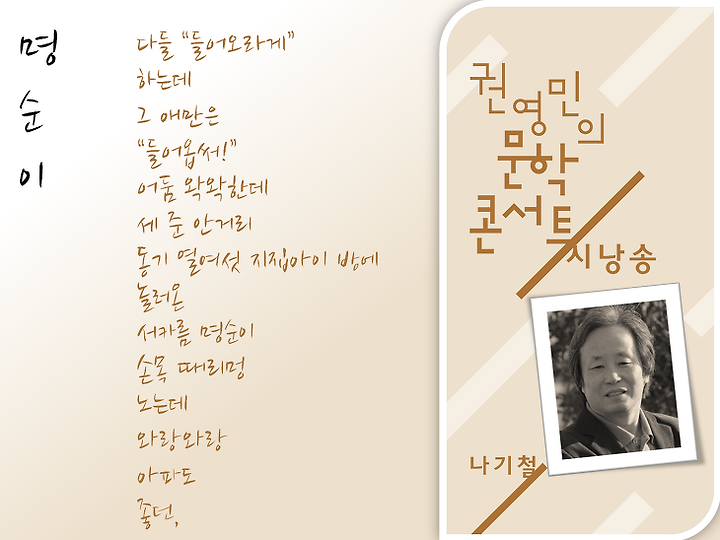 명순이
다들 “들어오라게”
하는데
그 애만은
“들어옵써!”
어둠 왁왁한데
세 준 안거리
동기 열여섯 지집아이 방에
놀러온
서카름 명순이
손목 때리멍
노는데
와랑와랑
아파도
좋던,
권영민의
문학
콘서트
시낭송
나기철